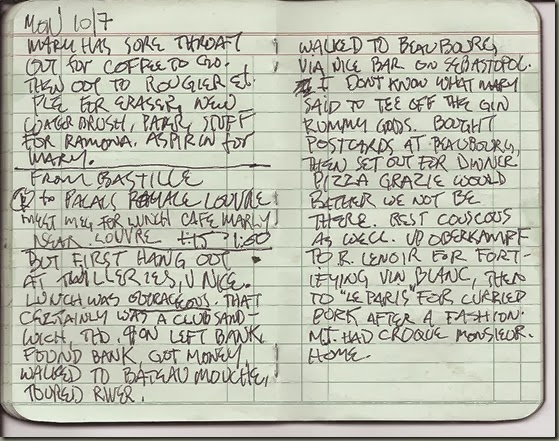 MON 10/7
MARY HAS SORE THROAT
OUT FOR COFFEE TO GO.
THEN OUT TO ROUGIER ET.
PLE FOR ERASER, NEW
WATER BRUSH, PAPER, STUFF
FOR RAMONA. ASPIRIN FOR
MARY.
FROM BASTILLE
① to PALAIS ROYALE LOUVRE
MEET MEG FOR LUNCH CAFE MARLY
NEAR LOUVRE 1:00
BUT FIRST HANG OUT
AT TUILLERIES, V NICE.
LUNCH WAS OUTRAGEOUS. THAT
CERTAINLY WAS A CLUB SAND-
WICH, THO. ON LEFT BANK
FOUND BANK, GOT MONEY,
WALKED TO BATEAU MOUCHE,
TOURED RIVER.
WALKED TO BEAUBOURG,
VIA NICE BAR ON SEBASTOPOL.
I DON'T KNOW WHAT MARY
SAID TO TEE OFF THE GIN
RUMMY GODS. BOUGHT
POSTCARDS AT BEAUBOURG,
THEN SET OUT FOR DINNER.
PIZZA GRAZIE WOULD
RATHER WE NOT BE
THERE. BEST COUSCOUS
AS WELL. UP OBERKAMPF
TO R. LENOIR FOR FORT-
IFYING VIN BLANC, THEN
TO "LE PARIS" FOR CURRIED
PORK AFTER A FASHION.
MJ. HAD CROQUE MONSIEUR.
HOME.